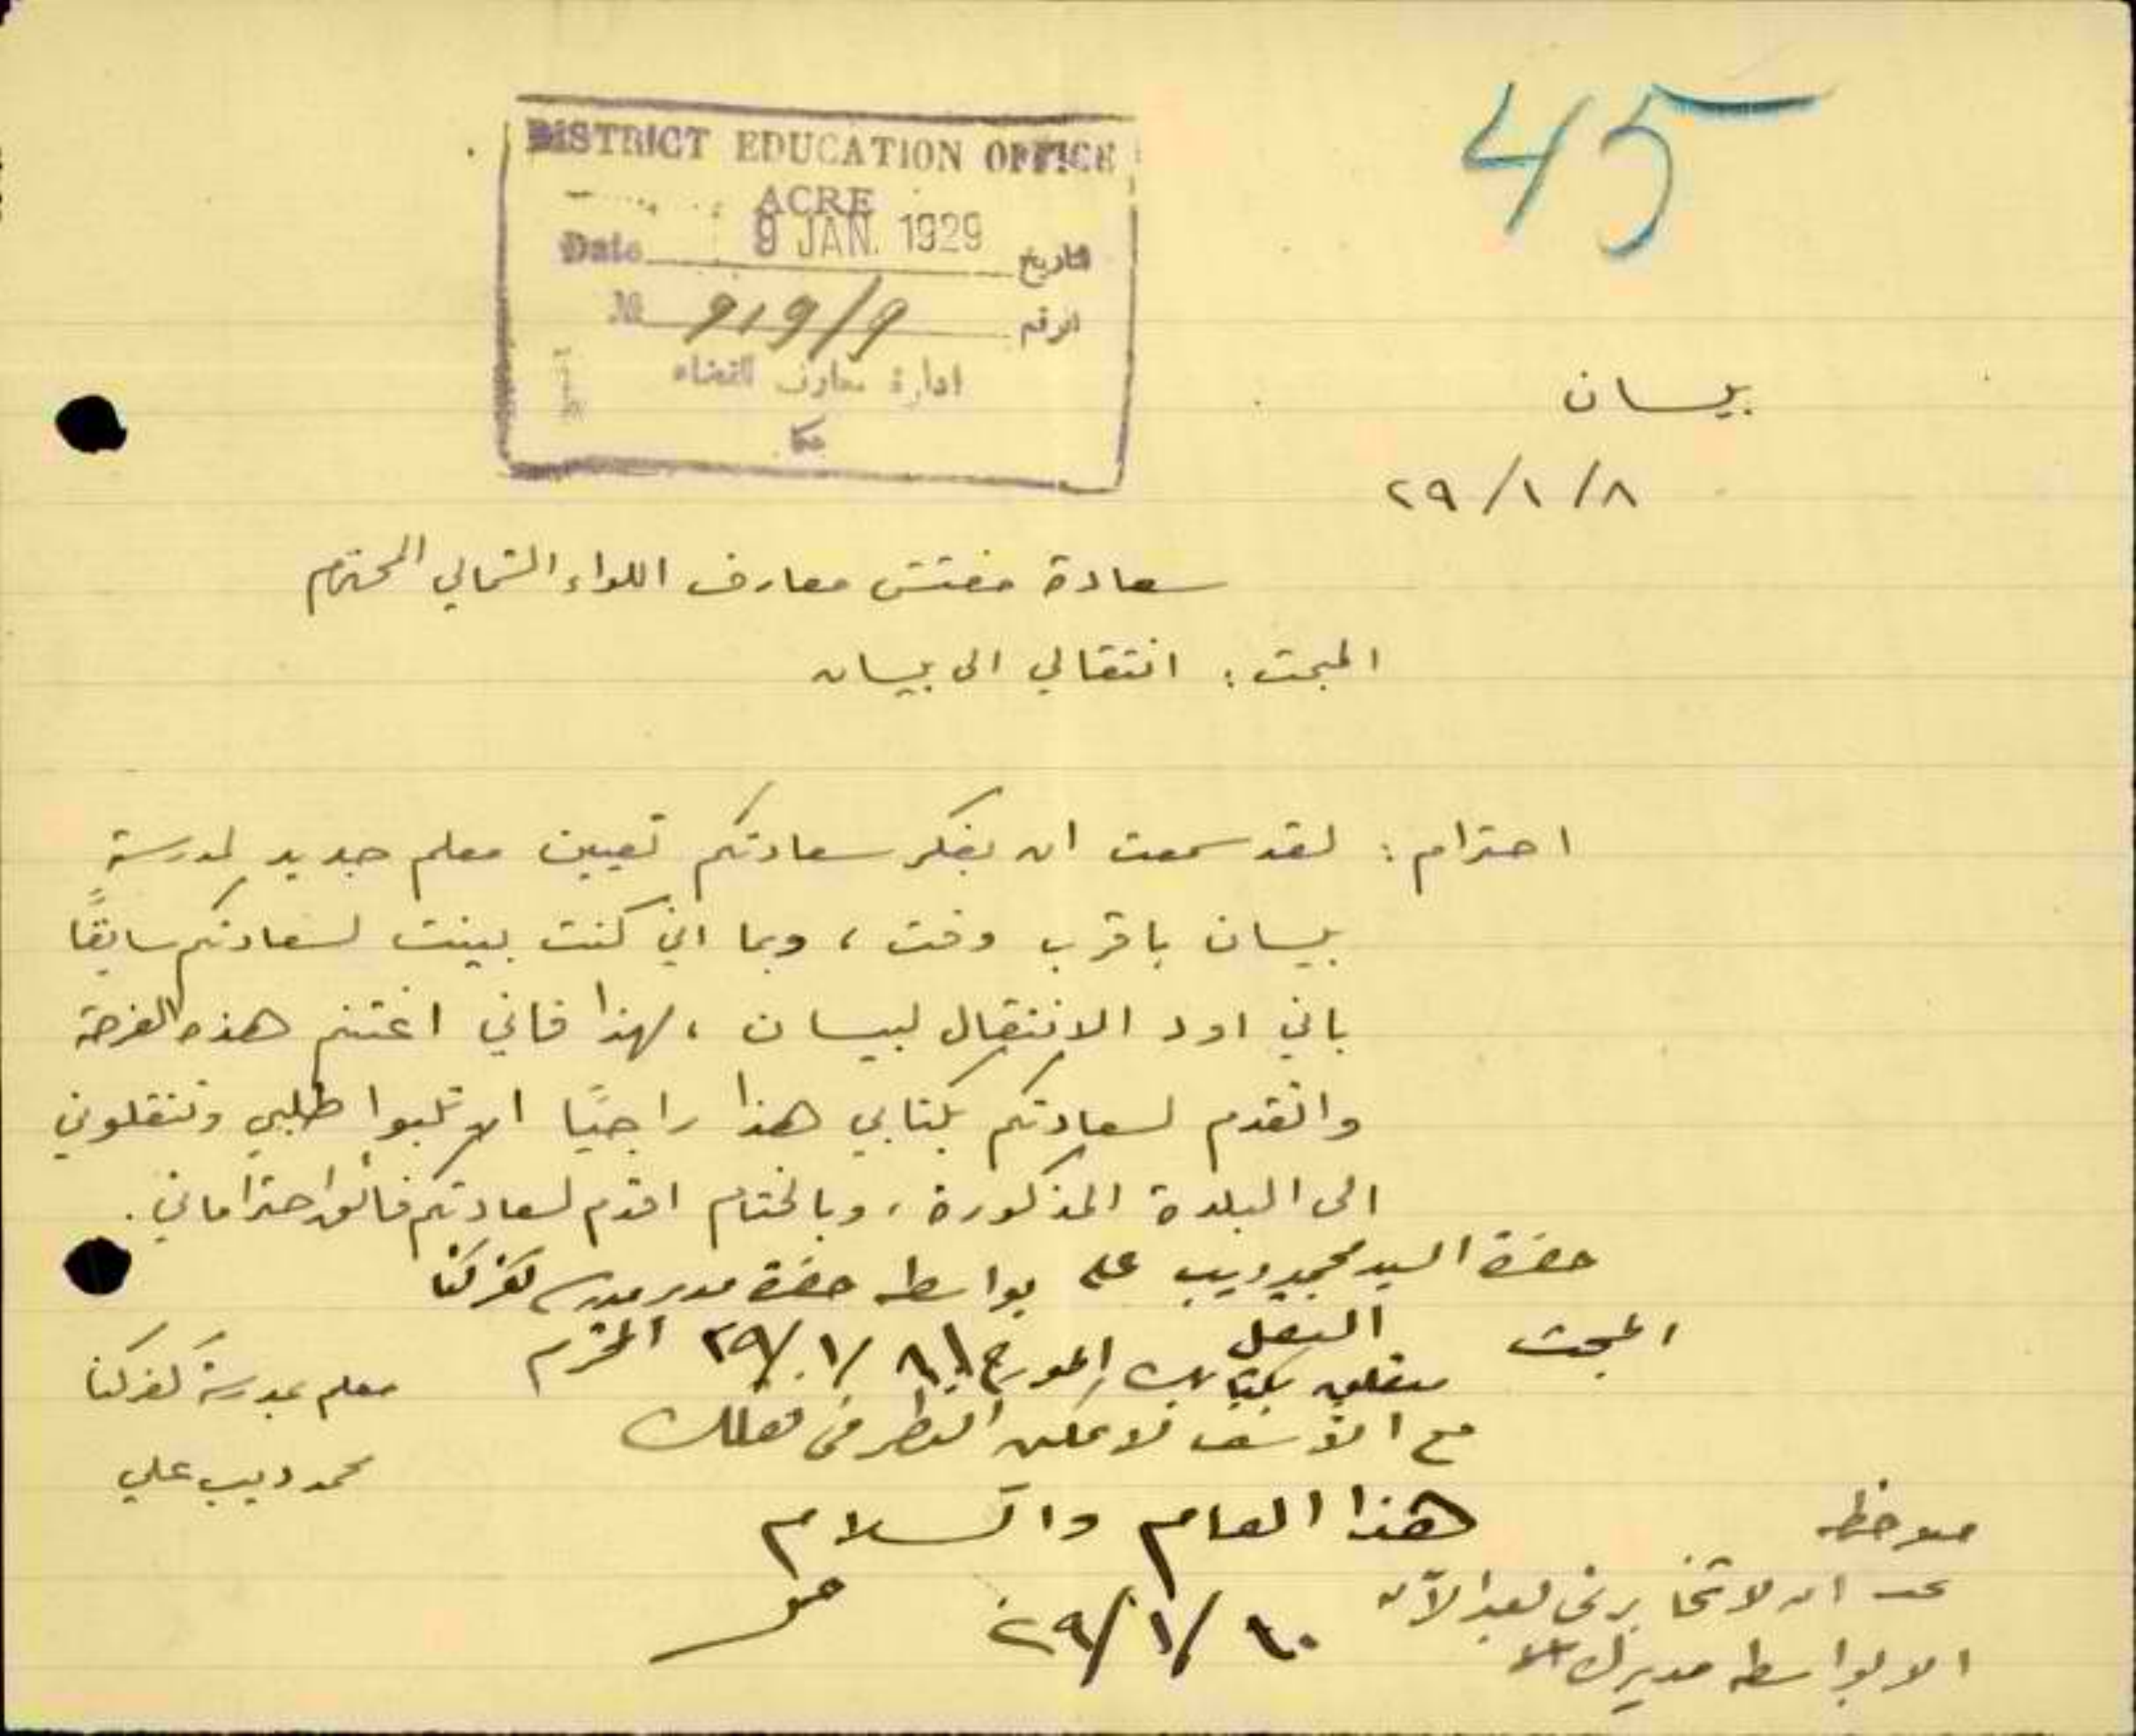 45
DISTRICT EDUCATION OFFICE
ACRE
Date 9 JAN. 1929 تاريخ
№ 919/9 الرقم
ادارة معارف القضاء
عكا
بيسان
٢٩/١/٨
سعادة مفتش معارف اللواء الشمالي المحترم
المبحث : انتقالي الى بيسان
احترام : لقد سمعت ان بفكر سعادتكم تعيين معلم جديد لمدرسة
بيسان باقرب وقت ، وبما اني كنت بينت لسعادتكم سابقًا
باني اود الانتقال لبيسان ، لهذا فاني اغتنم هذه الفرصة
واتقدم لسعادتكم بكتابي هذا راجيًا ان تلبوا طلبي وتنقلوني
الى البلدة المذكورة ، وبالختام اقدم لسعادتكم فائق احتراماتي .
حضرة السيد محمد ديب علي بواسطة حضرة مدير مدرسة كفركنا
المحترم
المبحث النقل
بكتابك المورخ ٢٩/١/٨
مع الأسف لا يمكن النظر في نقلك
هذا العام والسلام
٢٩/١/١٠
معلم بمدرسة كفركنا
محمد ديب علي
ملاحظه
يجب ان لا تخابرني بعد الآن
الا بواسطه مديرك